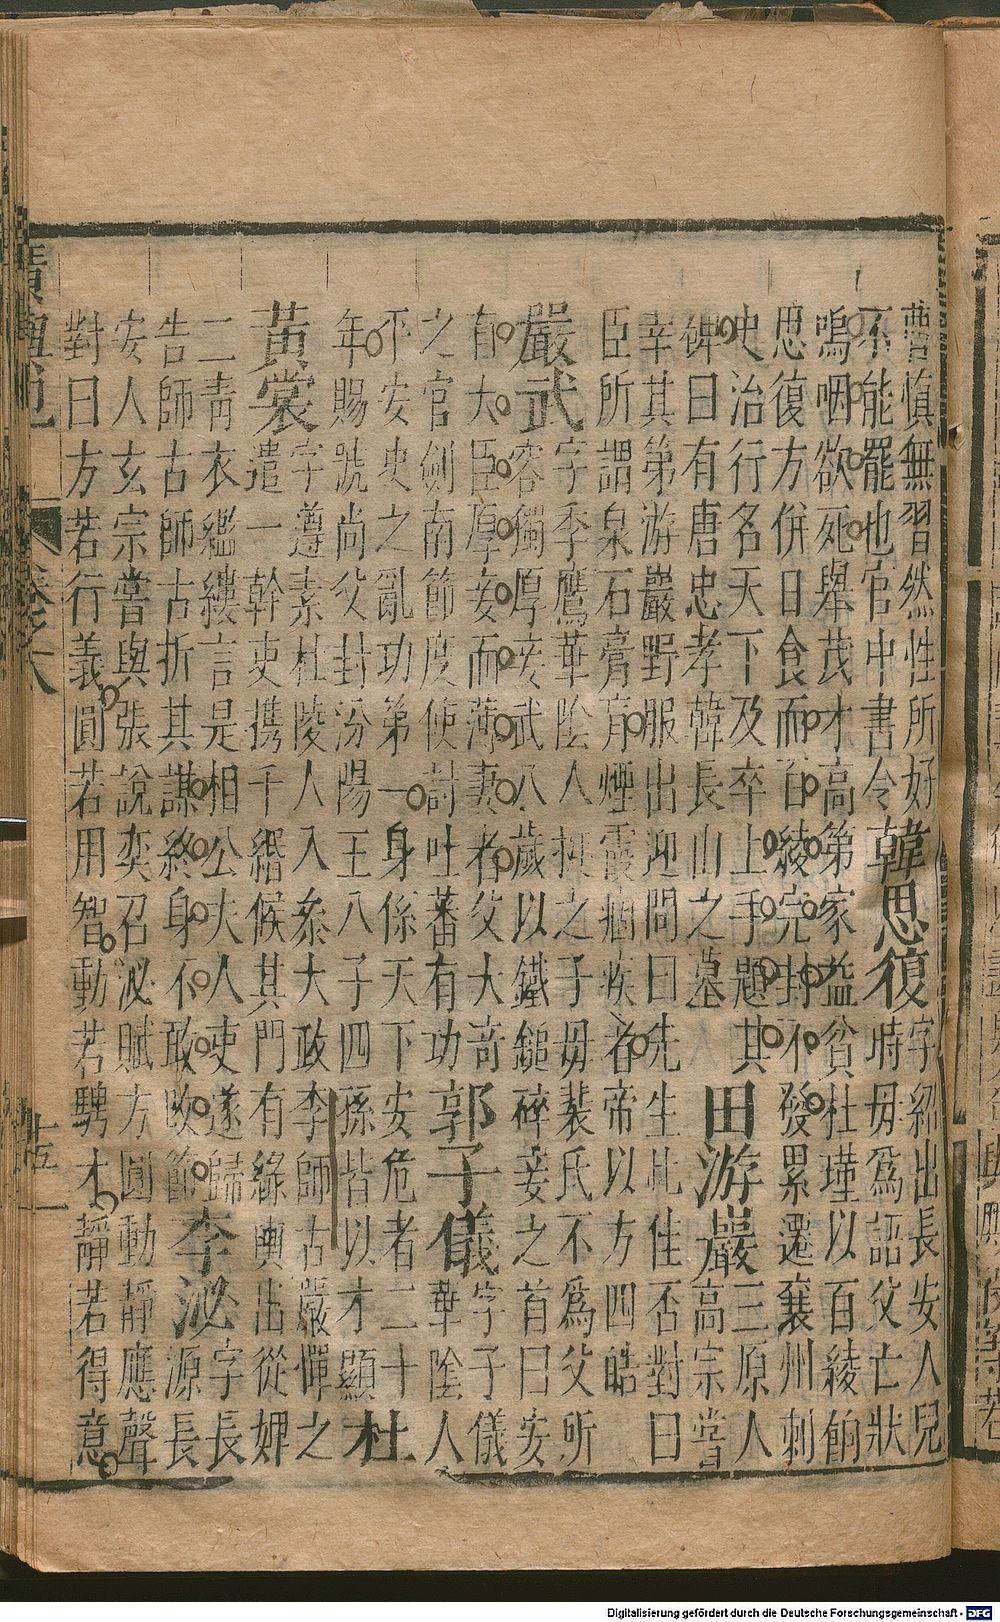 慎無習然性所好
不能罷也官中書令
韓思復
字紹出長安人兒
時毋爲語父亡狀
嗚咽欲死舉茂才高第家益貧杜瑾以百綾餉
思復方併日食而百綾完封不發累遷襄州刺
史治行名天下及卒上手題其
碑曰有唐忠孝韓長山之墓
田游巖
三原人
高宗嘗
幸其第游巖野服出迎問曰先生比佳否對曰
臣所謂泉石膏肓煙霞痼疾者帝以方四皓
嚴武
字季鷹華陰人挺之子毋裴氏不爲父所
容獨厚妾武八歲以鐵鎚碎妾之首曰安
有大臣厚妾而薄妻者父大奇
之官劍南節度使討吐蕃有功
郭子儀
字子儀
華陰人
平安史之亂功第一身係天下安危者二十
年賜號尚父封汾陽王八子四孫皆以才顯
杜
黃裳
字遵素杜陵人入叅大政李師古嚴憚之
遣一幹吏携千緡候其門有綠輿出從婢
二青衣繿縷言是相公夫人吏遂歸
告師古師古折其謀終身不敢改節
李泌
字長
源長
安人玄宗嘗與張說奕召泌賦方圓動靜應聲
對曰方若行義圓若用智動若騁才靜若得意
卷之六
十五
Digitalisierung gefördert durch die Deutsche Forschungsgemeinschaft - DFG